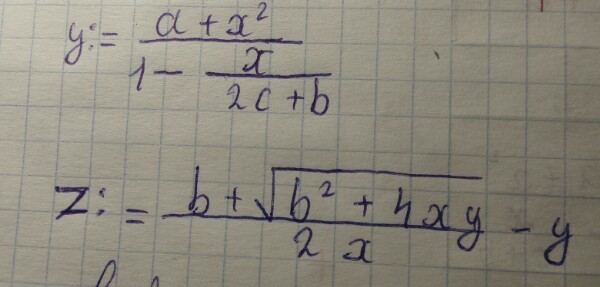 y:= (a + x²) / (1 - x / (2c + b))
z:= (b + √(b² + 4xy)) / (2x) - y